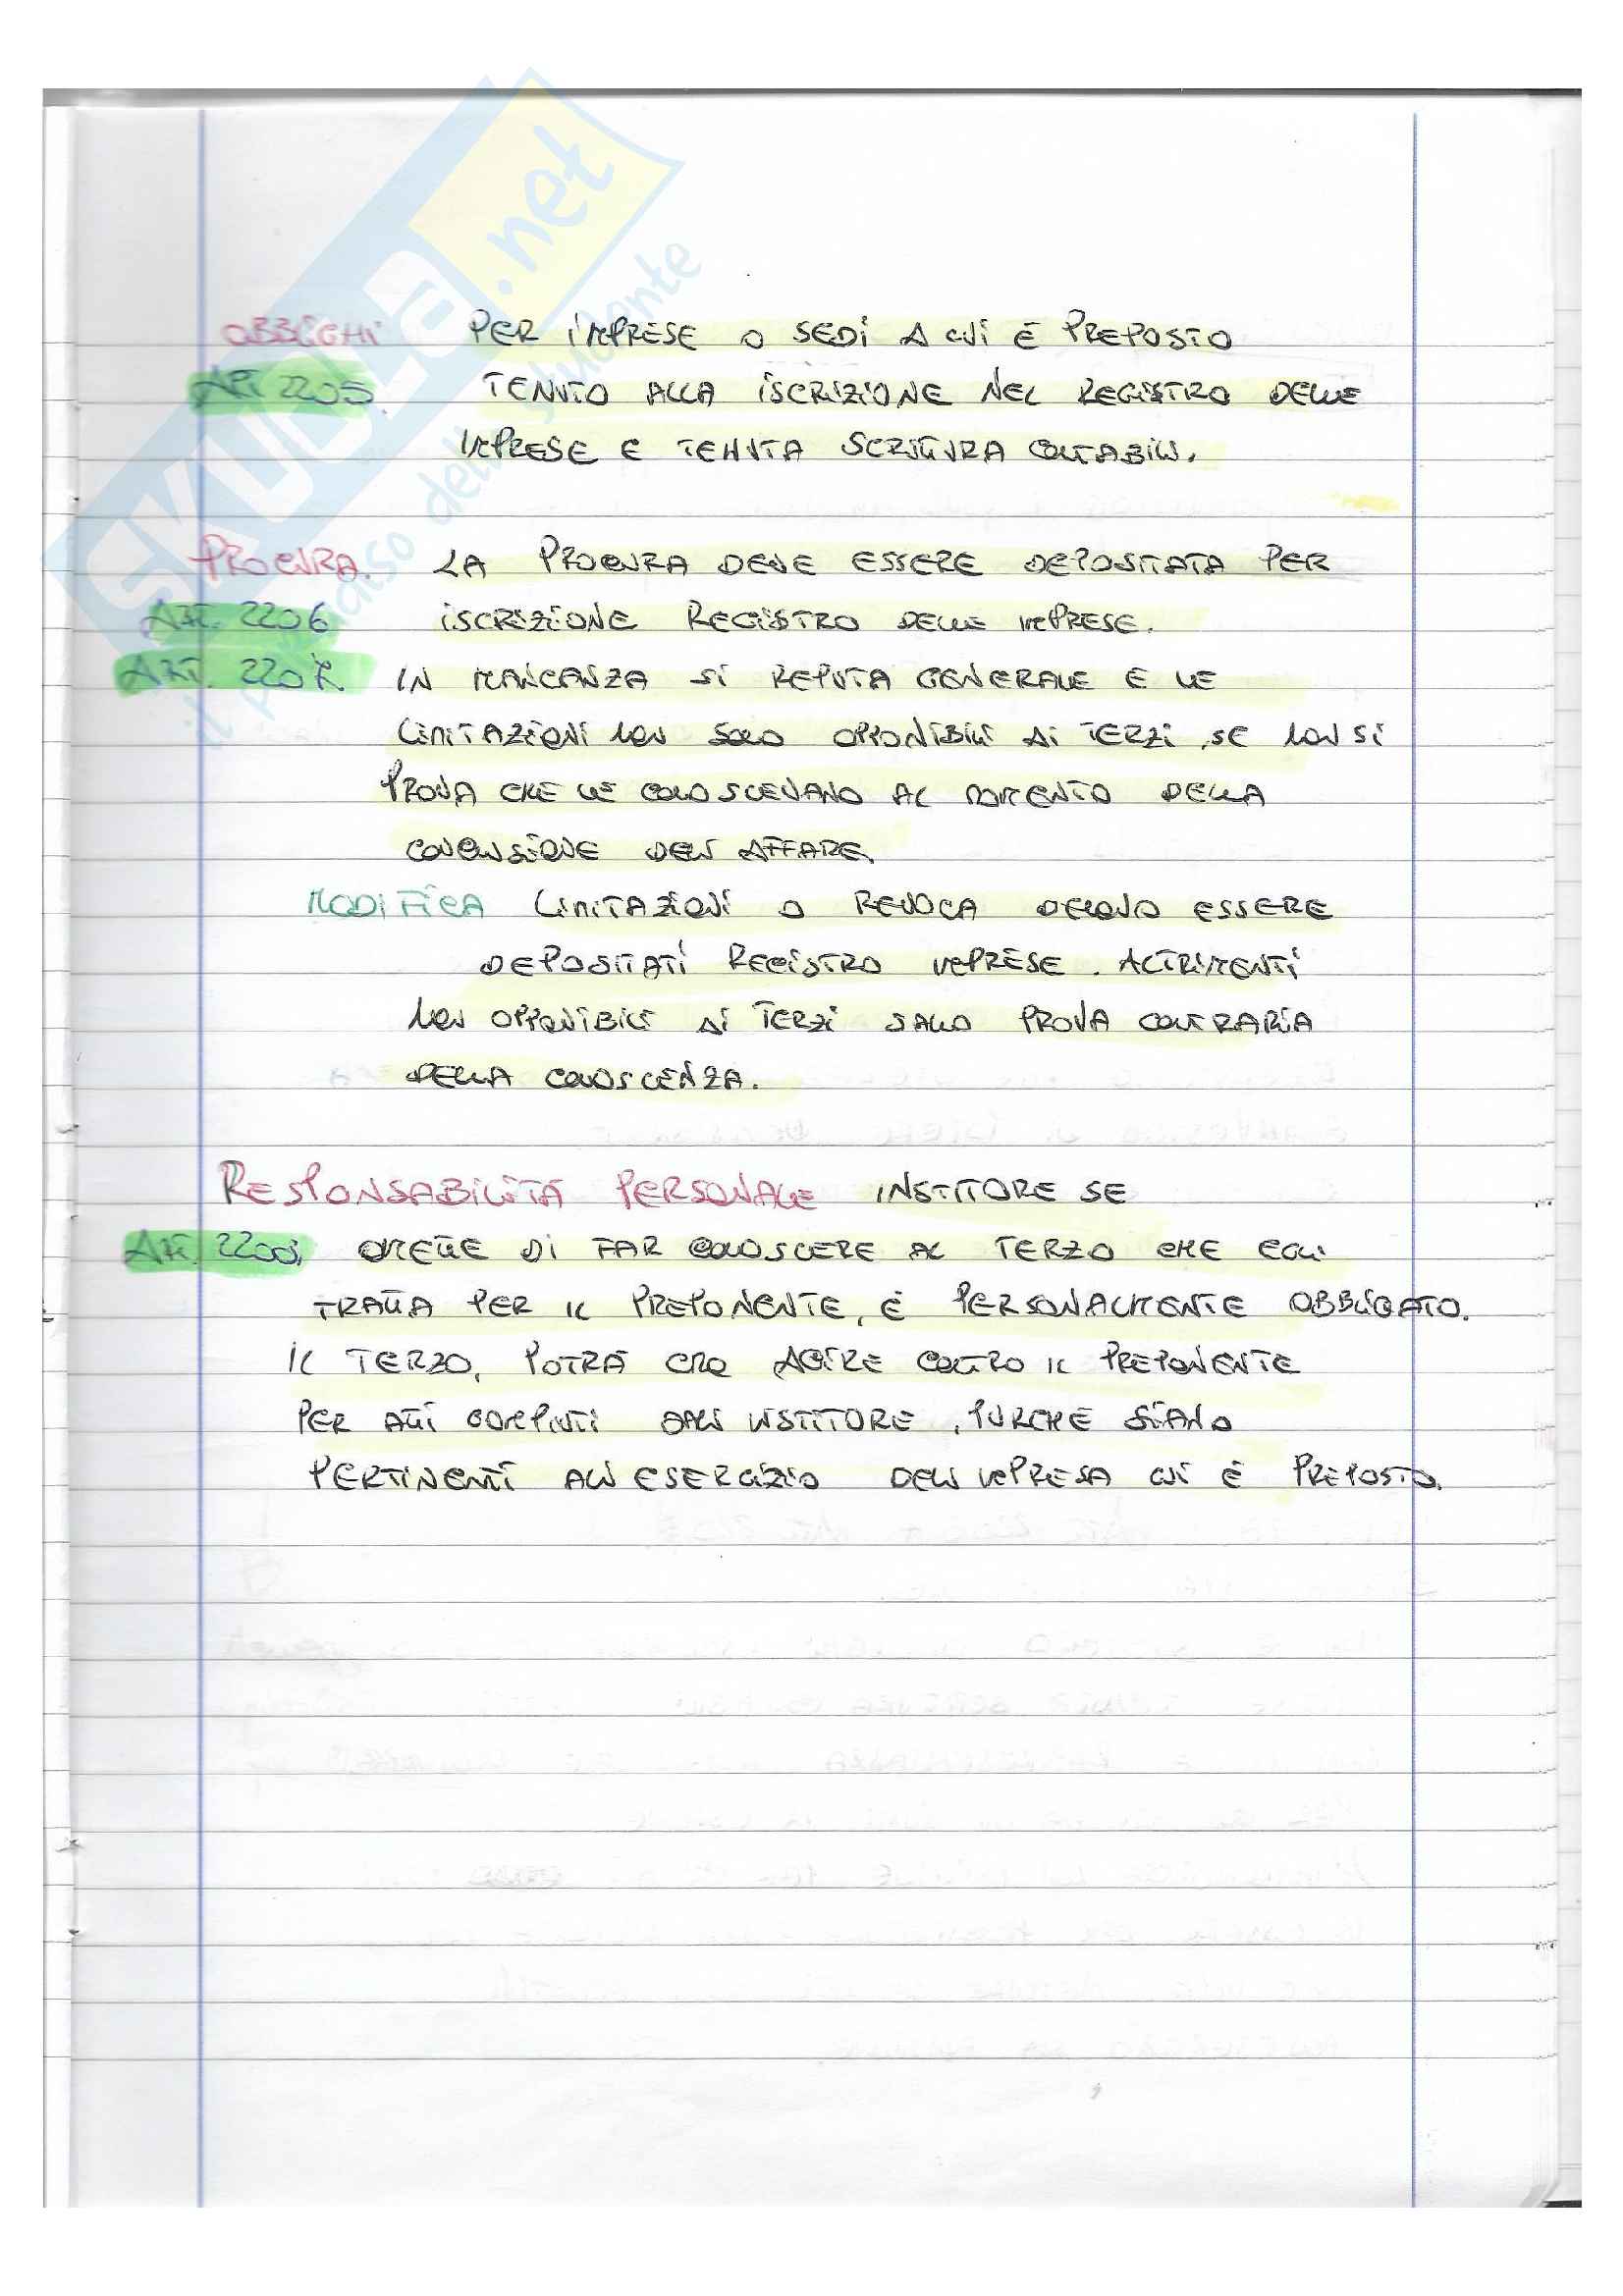 SKUOLA.net
il paradiso dello studente
OBBLIGHI PER IMPRESE O SEDI A CUI È PREPOSTO
ART 2205. TENUTO ALLA ISCRIZIONE NEL REGISTRO DELLE
IMPRESE E TENUTA SCRITTURA CONTABILI.
PROCURA. LA PROCURA DEVE ESSERE DEPOSITATA PER
ART. 2206 ISCRIZIONE REGISTRO DELLE IMPRESE.
ART. 2207. IN MANCANZA SI REPUTA GENERALE E LE
LIMITAZIONI NON SONO OPPONIBILI AI TERZI, SE NON SI
PROVA CHE LE CONOSCEVANO AL MOMENTO DELLA
CONCLUSIONE DELL'AFFARE.
MODIFICA LIMITAZIONI O REVOCA DEVONO ESSERE
DEPOSITATI REGISTRO IMPRESE. ALTRIMENTI
NON OPPONIBILI AI TERZI SALVO PROVA CONTRARIA
DELLA CONOSCENZA.
RESPONSABILITÀ PERSONALE INSTITORE SE
ART. OMETTE DI FAR CONOSCERE AL TERZO CHE EGLI
TRATTA PER IL PREPONENTE, È PERSONALMENTE OBBLIGATO.
IL TERZO, POTRÀ AGIRE CONTRO IL PREPONENTE
PER ATTI COMPIUTI DALL'INSTITORE, PURCHÉ SIANO
PERTINENTI ALL'ESERCIZIO DELL'IMPRESA CUI È PREPOSTO.